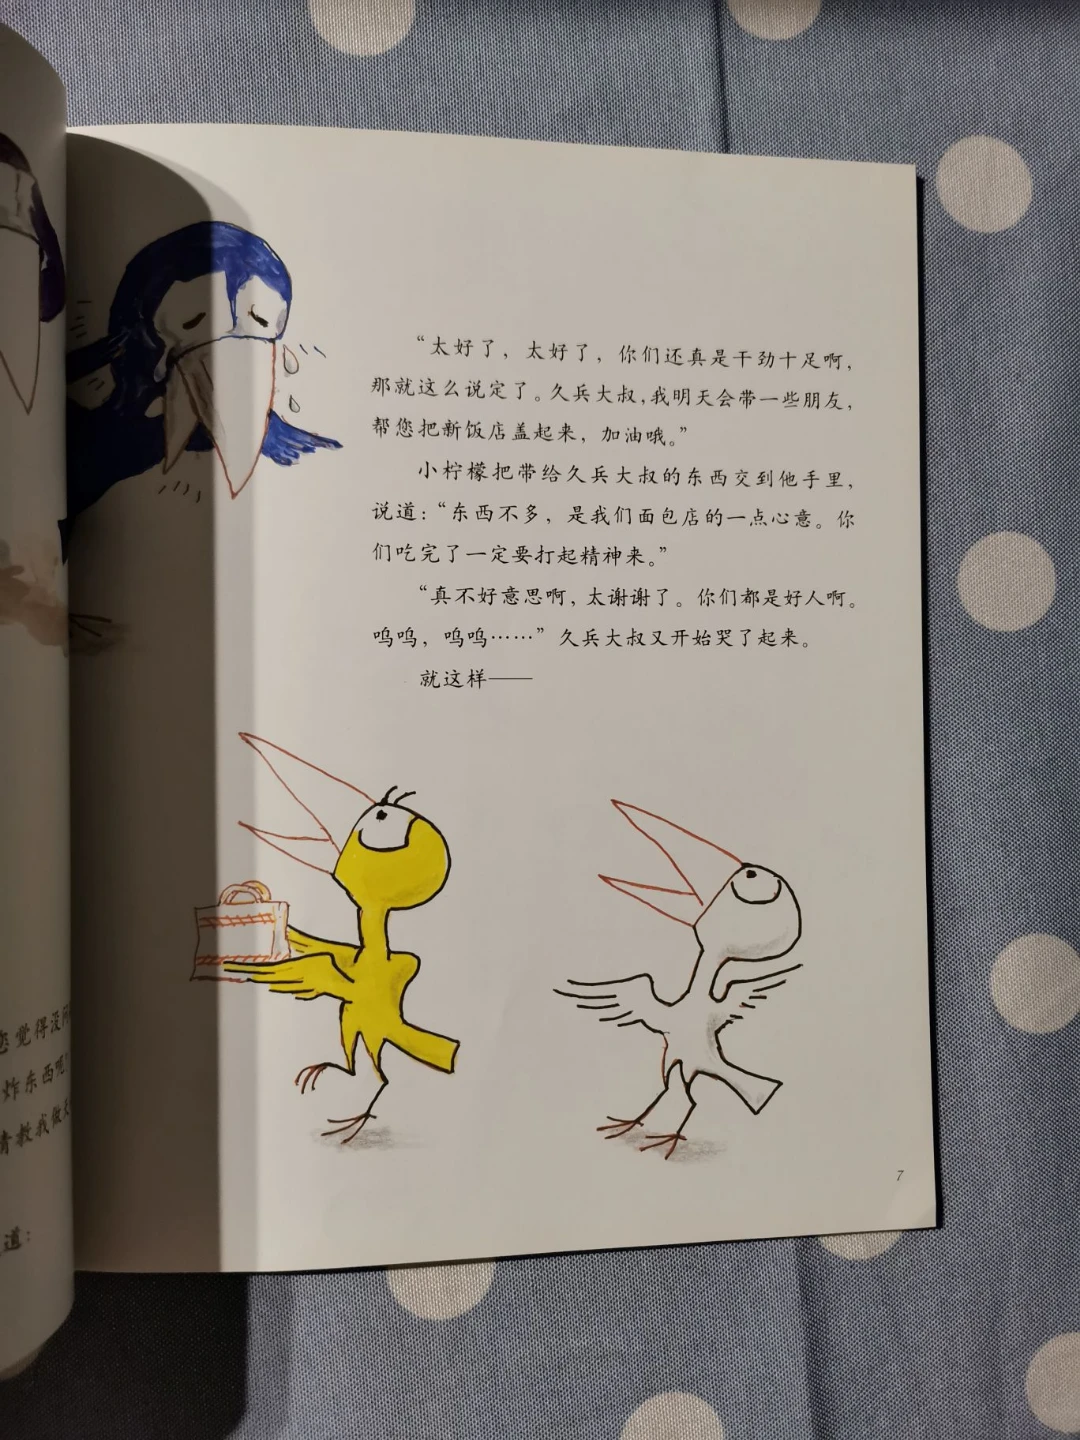 “太好了，太好了，你们还真是干劲十足啊，
那就这么说定了。久兵大叔，我明天会带一些朋友，
帮您把新饭店盖起来，加油哦。”
小柠檬把带给久兵大叔的东西交到他手里，
说道：“东西不多，是我们面包店的一点心意。你
们吃完了一定要打起精神来。”
“真不好意思啊，太谢谢了。你们都是好人啊。
呜呜，呜呜……”久兵大叔又开始哭了起来。
就这样——
7
觉得没
炸东西呢
教我做
道：